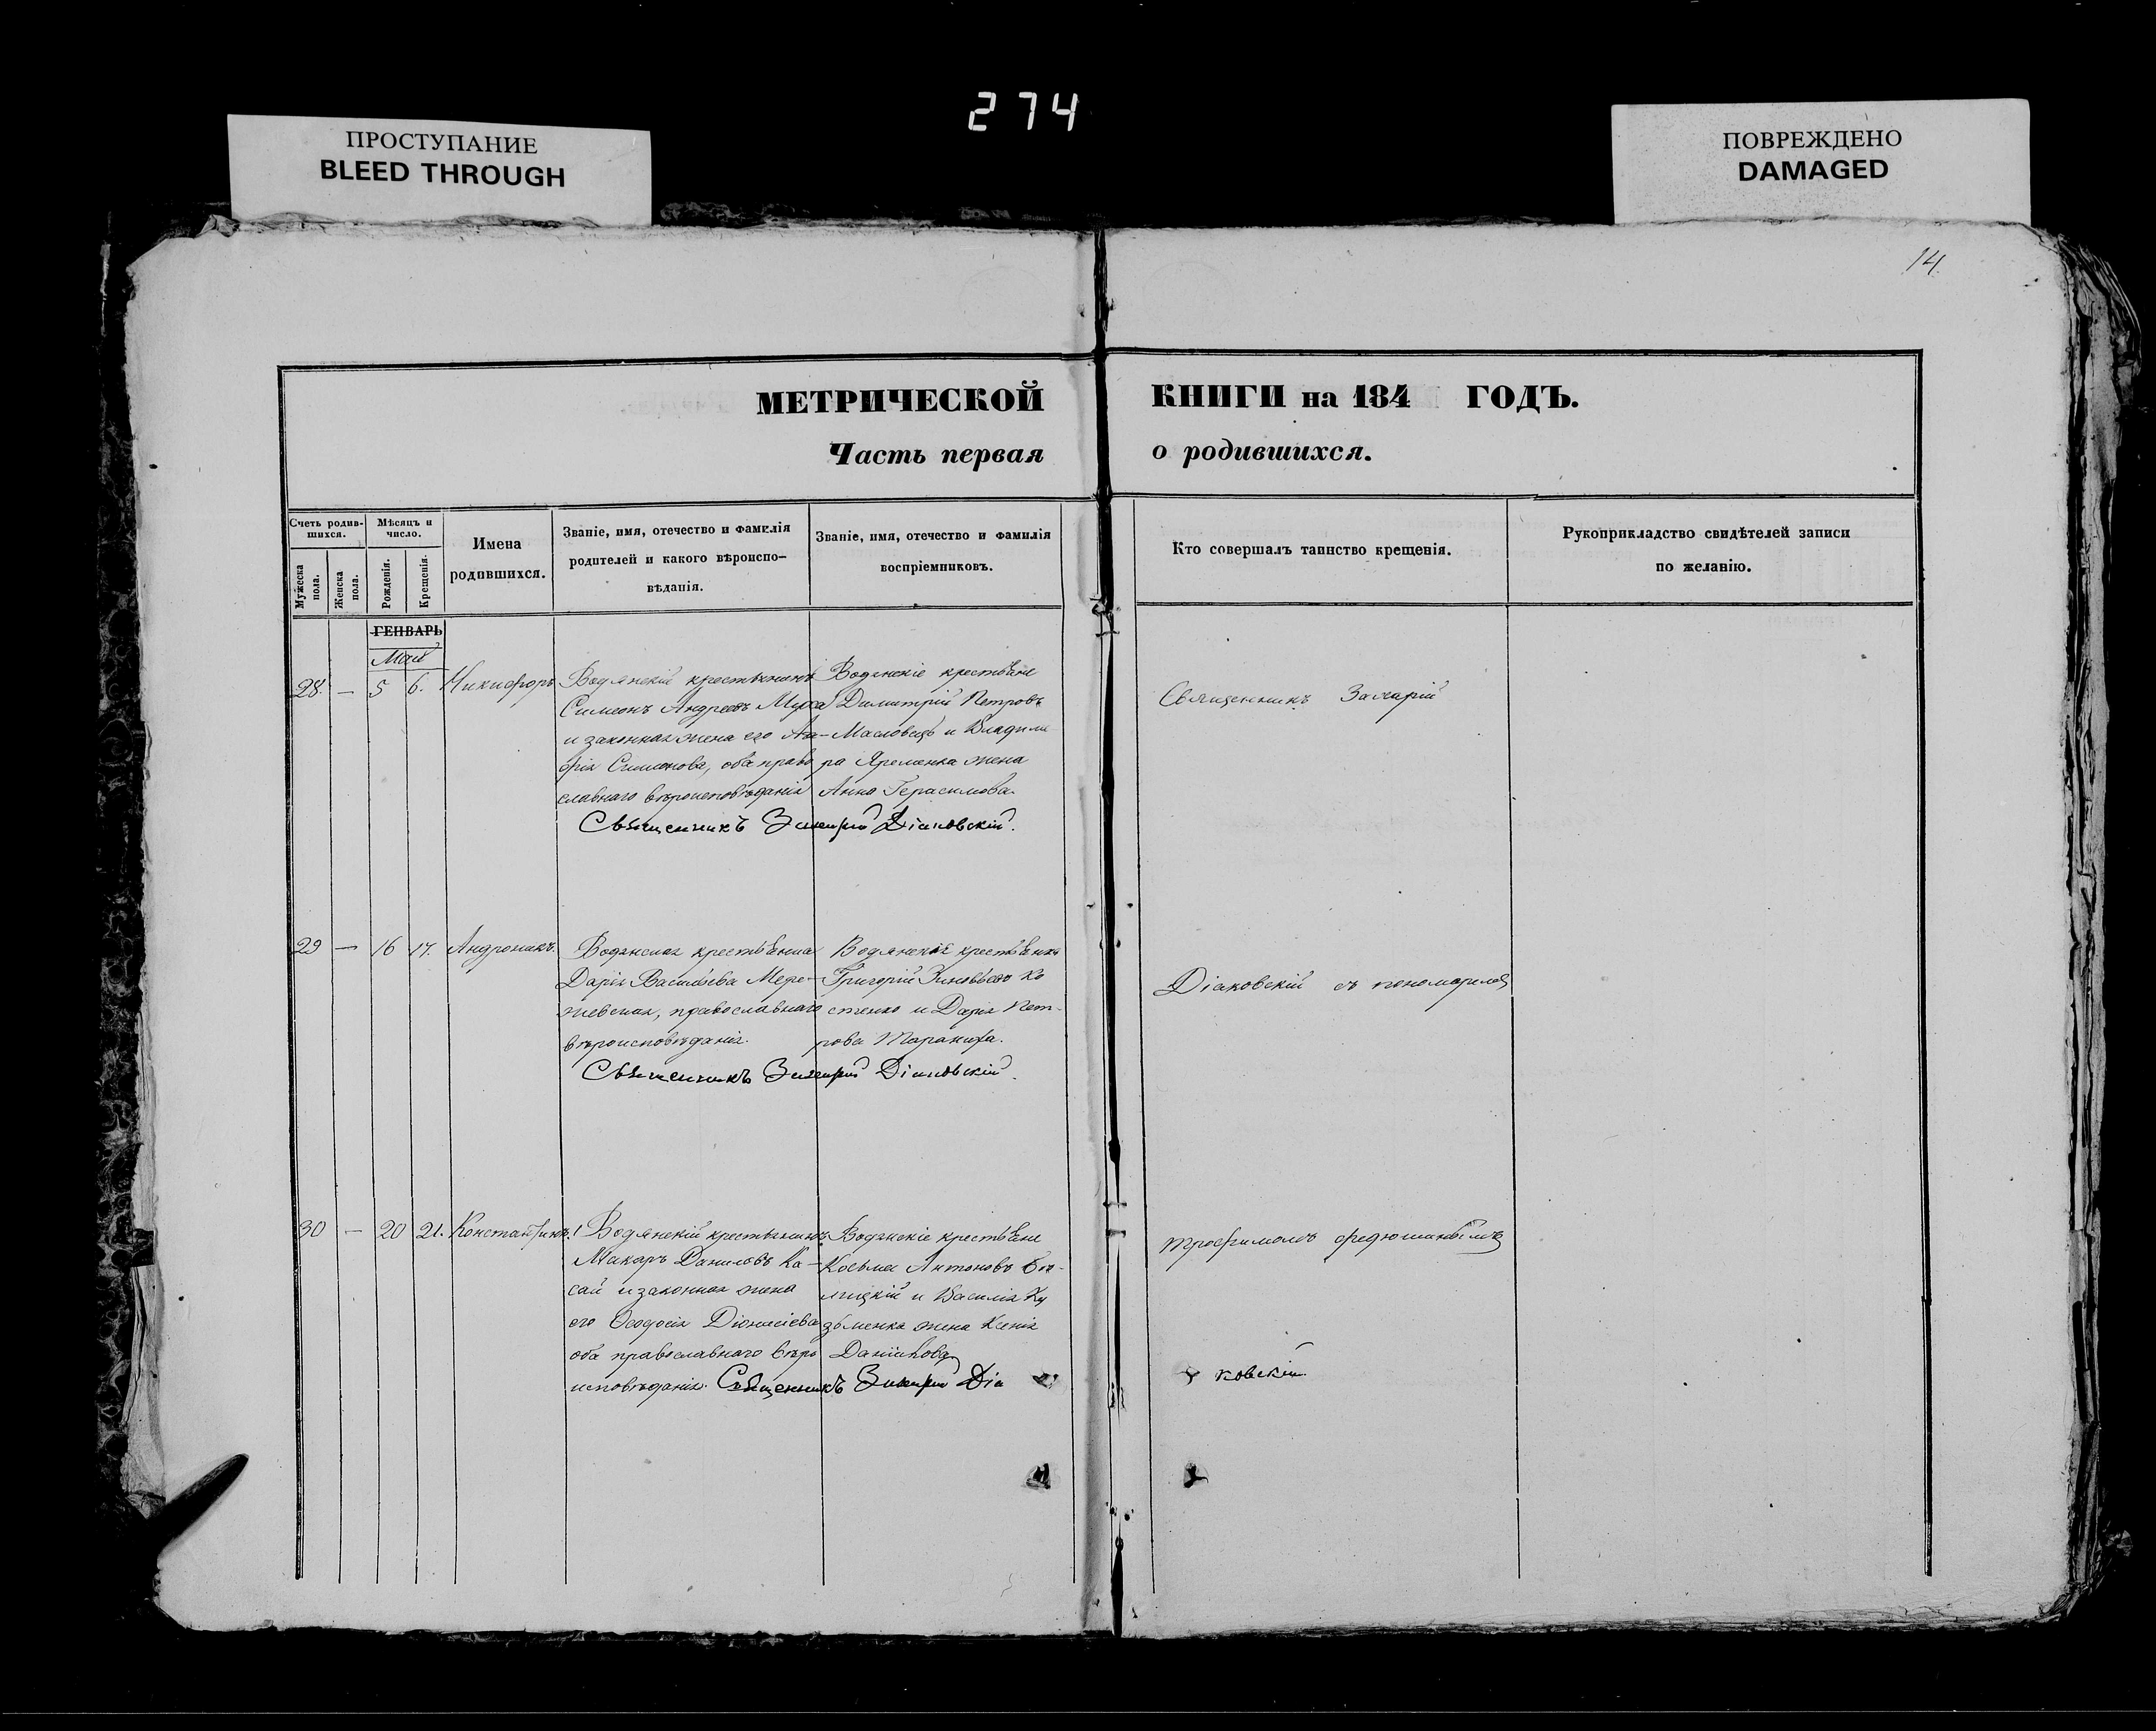 274
ПРОСТУПАНИЕ
BLEED THROUGH
ПОВРЕЖДЕНО
DAMAGED
14.
МЕТРИЧЕСКОЙ КНИГИ на 184 ГОДЪ.
Часть первая о родившихся.
Счетъ родив-
шихся.
Мужеска пола.
Женска пола.
Мѣсяцъ и
число.
Рожденія.
Крещенія.
Имена
родившихся.
Званіе, имя, отечество и фамилія
родителей и какого вѣроиспо-
вѣданія.
Званіе, имя, отечество и фамилія
воспріемниковъ.
Кто совершалъ таинство крещенія.
Рукоприкладство свидѣтелей записи
по желанію.
ГЕНВАРЬ
Май
28. — 5 6. Никифоръ
Водянскій крестьянинъ
Симеонъ Андреевъ Муха
и законная жена его Ага-
фія Симонова, оба право
славнаго вѣроисповѣданія
Водянскіе крестьяне
Димитрій Петровъ
Масловецъ и Владими
ра Яременка жена
Анна Герасимова.
Священникъ Захарій Діаковскій.
Священникъ Захарій
29 — 16 17. Андроникъ.
Водянская крестьянка
Дарія Васильева Мере-
жевская, православнаго
вѣроисповѣданія.
Григорій Зиновьевъ Ко
стенко и Дарія Пет-
рова
Священникъ Захарій Діаковскій.
Діаковскій съ пономаремъ
30 — 20 21. Константинъ.
Водянскій крестьянинъ
Макаръ Даниловъ Ка-
сай и законная жена
его Ѳеодосія Діонисіева
оба православнаго вѣро
исповѣданія.
Водянскіе крестьяне
Косьма Антоновъ
и Василія Ку
зьменка жена Ксенія
Данилова
Священникъ Захарій Діа
ковскій.
Трофимомъ